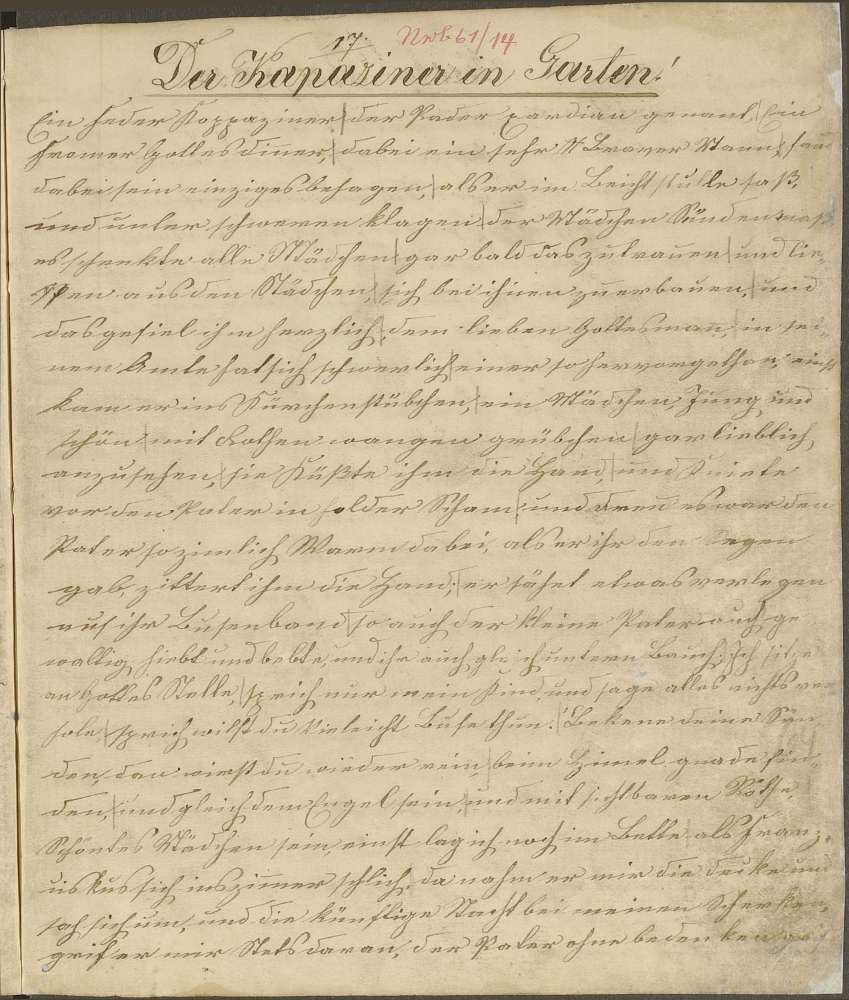 17. Nrb61/14
Der Kapaziner in Garten!
Ein jeder Koppaziner | der Pader Gardian genant, | Ein
Fromer Gottes dinner, | dabei ein sehr Braver Mann, | fand
dabei sein einziges behagen, | als er im Beicht stulle saß,
und unter schweren klagen | der Mädchen Sünden maß
es schenkte alle Mädchen | gar bald das zutrauen | und lie-
ffen aus den Städchen, | sich bei ihnen zu erbauen, | und
das gefiel ihm herzlich, | dem lieben Gottesman, | in sei-
nem Amte hat sich schwerlich | einer so hervorgethan, | einst
kam er ins Kürchenstübchen, | ein Mädchen, Jung und
schön | mit Rothen wangen grübchen | gar lieblich,
anzusehen, | sie Küßte ihm die Hand, | und Kniete
vor den Pater in holder Scham | und treu es war den
Pater so zimlich Warm dabei, als er ihr den Segen
gab, zittert ihm die Hand, | er sähet etwas verlegen
auf ihr Busenband | so auch der kleine Pater auch ge
waltig hiebt und bebte, und ihr auch gleich untern Bauch, | Ich sitze
an Gottes Stelle, | sprich nur mein Kind, und sage alles nichts ver
hole, | sprich willst du Vieleicht Buse thun. | Bekene deine Sün
den, dan wirst du wieder rein, | beim Himel gnade fin-
den, | und gleich dem Engel sein, | und mit sichtbaren Röthe,
Schöntes Mädchen sein, einst lag ich noch im Bette | als Franz-
iskus sich ins zimmer schlich, | da nahm er mir die decke und
sah sich um, und die künftige Nacht bei meinen Scherken,
grif er mir Stets daran, | der Pater ohne bedenken